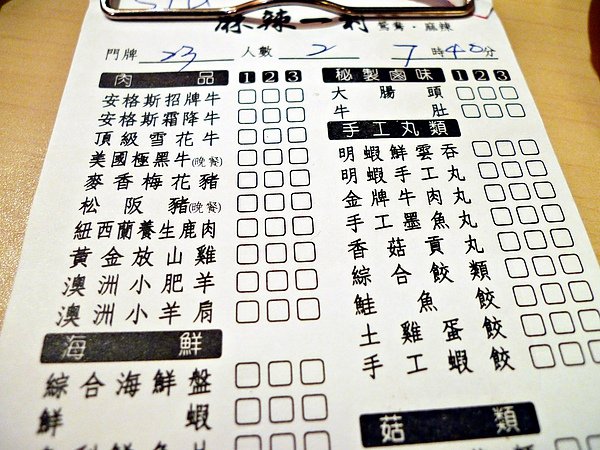 麻辣一
鴛鴦·麻辣
門牌 23 人數 2 7時40分
肉品 1 2 3
安格斯招牌牛
安格斯霜降牛
頂級雪花牛
美國極黑牛(晚餐)
麥香梅花豬
松阪豬(晚餐)
紐西蘭養生鹿肉
黃金放山雞
澳洲小肥羊
澳洲小羊肩
海鮮
綜合海鮮盤
鮮蝦
秘製鹵味 1 2 3
大腸頭
牛肚
手工丸類
明蝦鮮雲吞
明蝦手工丸
金牌牛肉丸
手工墨魚丸
香菇貢丸
綜合餃類
鮭魚餃
土雞蛋餃
手工蝦餃
菇類